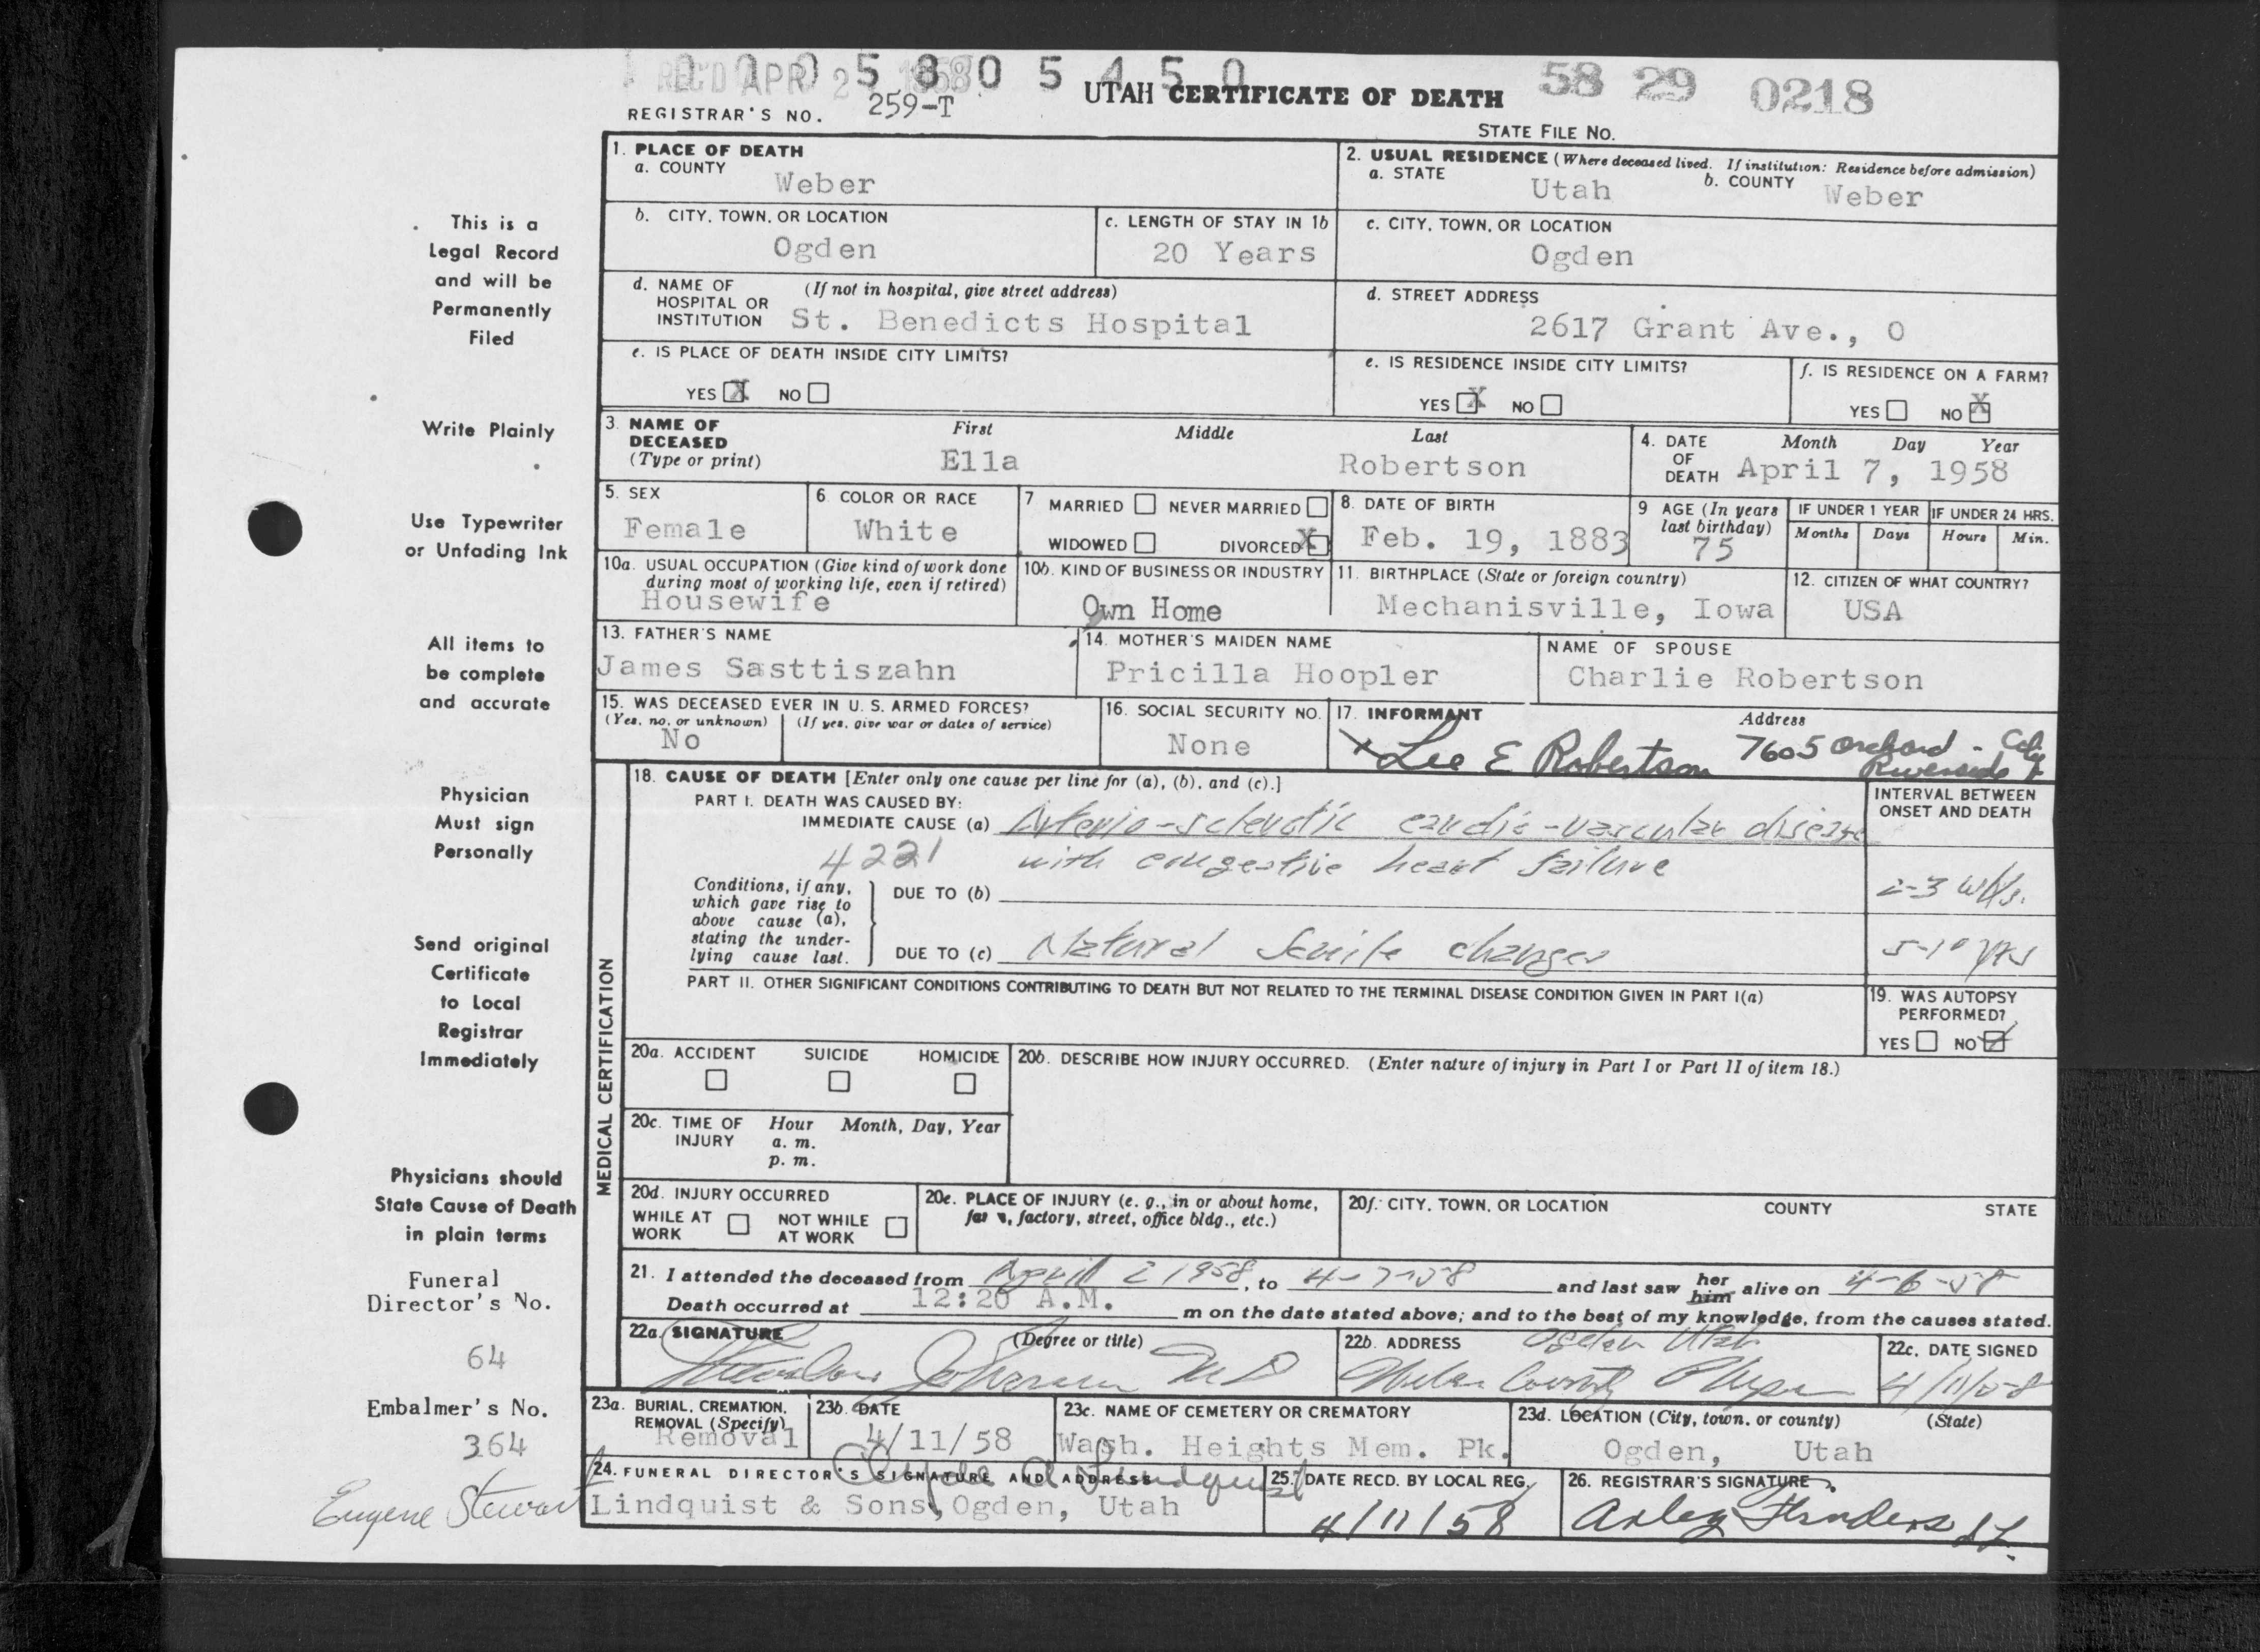 REC'D APR 2 1958
0 1 0 5 8 0 5 4 5 0
UTAH CERTIFICATE OF DEATH
58 29 0218
REGISTRAR'S NO. 259-T
STATE FILE NO.
This is a
Legal Record
and will be
Permanently
Filed
Write Plainly
Use Typewriter
or Unfading Ink
All items to
be complete
and accurate
Physician
Must sign
Personally
Send original
Certificate
to Local
Registrar
Immediately
Physicians should
State Cause of Death
in plain terms
Funeral
Director's No.
64
Embalmer's No.
364
Eugene Stewart
1. PLACE OF DEATH
a. COUNTY
Weber
2. USUAL RESIDENCE (Where deceased lived. If institution: Residence before admission)
a. STATE Utah b. COUNTY Weber
b. CITY, TOWN, OR LOCATION
Ogden
c. LENGTH OF STAY IN 1b
20 Years
c. CITY, TOWN, OR LOCATION
Ogden
d. NAME OF HOSPITAL OR INSTITUTION (If not in hospital, give street address)
St. Benedicts Hospital
d. STREET ADDRESS
2617 Grant Ave., O
e. IS PLACE OF DEATH INSIDE CITY LIMITS?
YES X NO
e. IS RESIDENCE INSIDE CITY LIMITS?
YES X NO
f. IS RESIDENCE ON A FARM?
YES NO X
3. NAME OF DECEASED (Type or print)
First Middle Last
Ella Robertson
4. DATE OF DEATH Month Day Year
April 7, 1958
5. SEX
Female
6. COLOR OR RACE
White
7 MARRIED NEVER MARRIED
WIDOWED DIVORCED X
8. DATE OF BIRTH
Feb. 19, 1883
9 AGE (In years last birthday)
75
IF UNDER 1 YEAR IF UNDER 24 HRS.
Months Days Hours Min.
10a. USUAL OCCUPATION (Give kind of work done during most of working life, even if retired)
Housewife
10b. KIND OF BUSINESS OR INDUSTRY
Own Home
11. BIRTHPLACE (State or foreign country)
Mechanisville, Iowa
12. CITIZEN OF WHAT COUNTRY?
USA
13. FATHER'S NAME
James Sasttiszahn
14. MOTHER'S MAIDEN NAME
Pricilla Hoopler
NAME OF SPOUSE
Charlie Robertson
15. WAS DECEASED EVER IN U. S. ARMED FORCES?
(Yes, no, or unknown) (If yes, give war or dates of service)
No
16. SOCIAL SECURITY NO.
None
17. INFORMANT Address
x Lee E Robertson 7605 Orchard - Calif
Riverside
MEDICAL CERTIFICATION
18. CAUSE OF DEATH [Enter only one cause per line for (a), (b), and (c).]
PART I. DEATH WAS CAUSED BY:
IMMEDIATE CAUSE (a) Arterio-sclerotic cardio-vascular disease
4221 with congestive heart failure
INTERVAL BETWEEN ONSET AND DEATH
Conditions, if any, which gave rise to above cause (a), stating the underlying cause last.
DUE TO (b)
2-3 wks.
DUE TO (c) Natural senile changes
5-10 yrs
PART II. OTHER SIGNIFICANT CONDITIONS CONTRIBUTING TO DEATH BUT NOT RELATED TO THE TERMINAL DISEASE CONDITION GIVEN IN PART I(a)
19. WAS AUTOPSY PERFORMED?
YES NO
20a. ACCIDENT SUICIDE HOMICIDE
20b. DESCRIBE HOW INJURY OCCURRED. (Enter nature of injury in Part I or Part II of item 18.)
20c. TIME OF INJURY Hour Month, Day, Year
a. m.
p. m.
20d. INJURY OCCURRED
WHILE AT WORK NOT WHILE AT WORK
20e. PLACE OF INJURY (e. g., in or about home, farm, factory, street, office bldg., etc.)
20f. CITY, TOWN, OR LOCATION COUNTY STATE
21. I attended the deceased from April 2 1958, to 4-7-58 and last saw her him alive on 4-6-58
Death occurred at 12:20 A.M. m on the date stated above; and to the best of my knowledge, from the causes stated.
22a. SIGNATURE (Degree or title)
M D
22b. ADDRESS Ogden Utah
Weber County
22c. DATE SIGNED
4/11/58
23a. BURIAL, CREMATION, REMOVAL (Specify)
Removal
23b. DATE
4/11/58
23c. NAME OF CEMETERY OR CREMATORY
Wash. Heights Mem. Pk.
23d. LOCATION (City, town, or county) (State)
Ogden, Utah
24. FUNERAL DIRECTOR'S SIGNATURE AND ADDRESS
Clyde A Lindquist
Lindquist & Sons, Ogden, Utah
25. DATE RECD. BY LOCAL REG.
4/11/58
26. REGISTRAR'S SIGNATURE
Arley Flinders